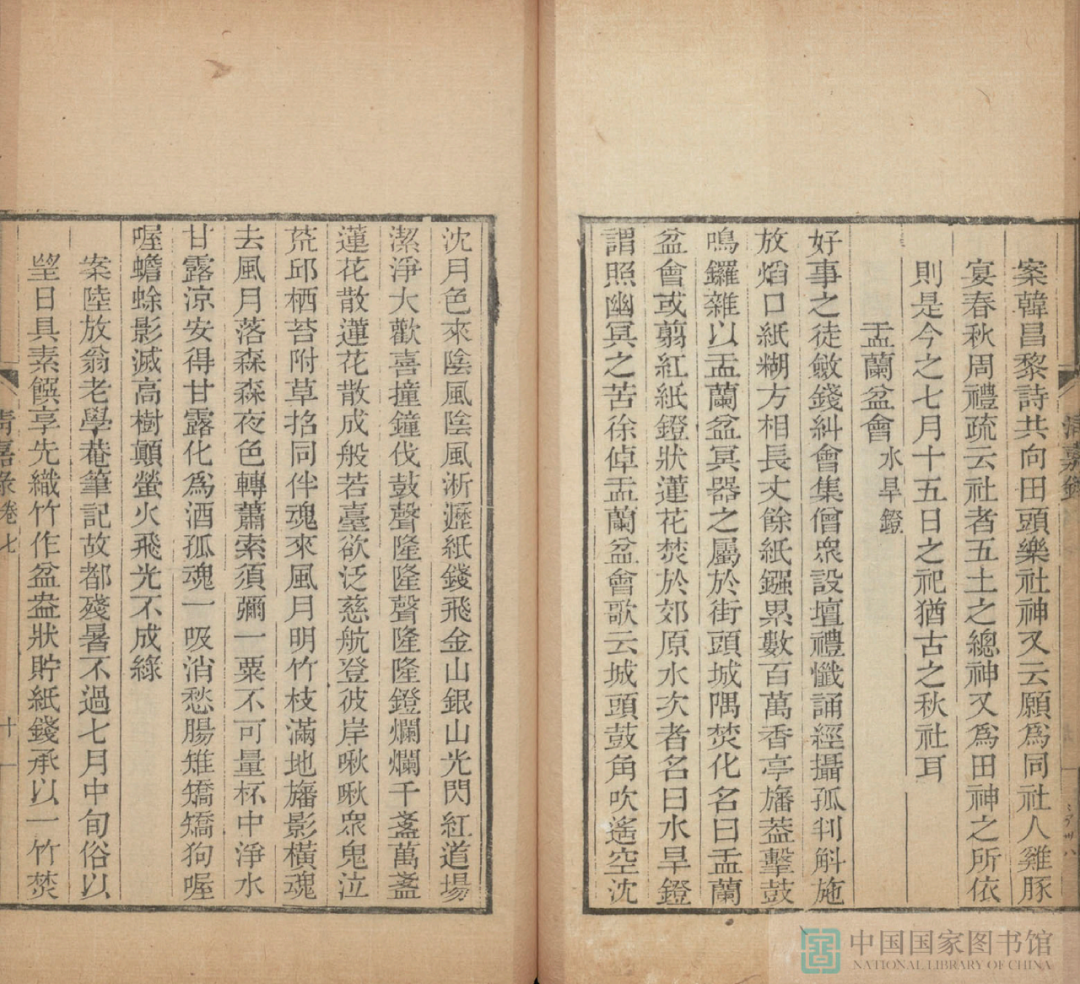 案韓昌黎詩共向田頭樂社神又云願爲同社人雞豚
宴春秋周禮疏云社者五土之總神又爲田神之所依
則是今之七月十五日之祀猶古之秋社耳
盂蘭盆會 水旱鐙
好事之徒斂錢糾會集僧眾設壇禮懺誦經攝孤判斛施
放熖口紙糊方相長丈餘紙鏹累數百萬香亭旛葢擊鼓
鳴鑼雜以盂蘭盆冥器之屬於街頭城隅焚化名曰盂蘭
盆會或剪紅紙鐙狀蓮花焚於郊原水次者名曰水旱鐙
謂照幽冥之苦徐倬盂蘭盆會歌云城頭鼓角吹遙空沈
沈月色來陰風陰風淅瀝紙錢飛金山銀山光閃紅道場
潔淨大歡喜撞鐘伐鼓聲隆隆聲隆隆鐙爛爛千盞萬盞
蓮花散蓮花散成般若臺欲泛慈航登彼岸啾啾眾鬼泣
荒邱栖苔附草掐同伴魂來風月明竹枝滿地旛影橫魂
去風月落森森夜色轉蕭索須彌一粟不可量杯中淨水
甘露涼安得甘露化爲酒孤魂一吸消愁腸雉矯矯狗喔
喔蟾蜍影滅高樹顚螢火飛光不成綠
案陸放翁老學菴筆記故都殘暑不過七月中旬俗以
朢日具素饌享先織竹作盆盎狀貯紙錢承以一竹焚
清嘉錄
清嘉彔 卷七
十一
中国国家图书馆
NATIONAL LIBRARY OF CHINA